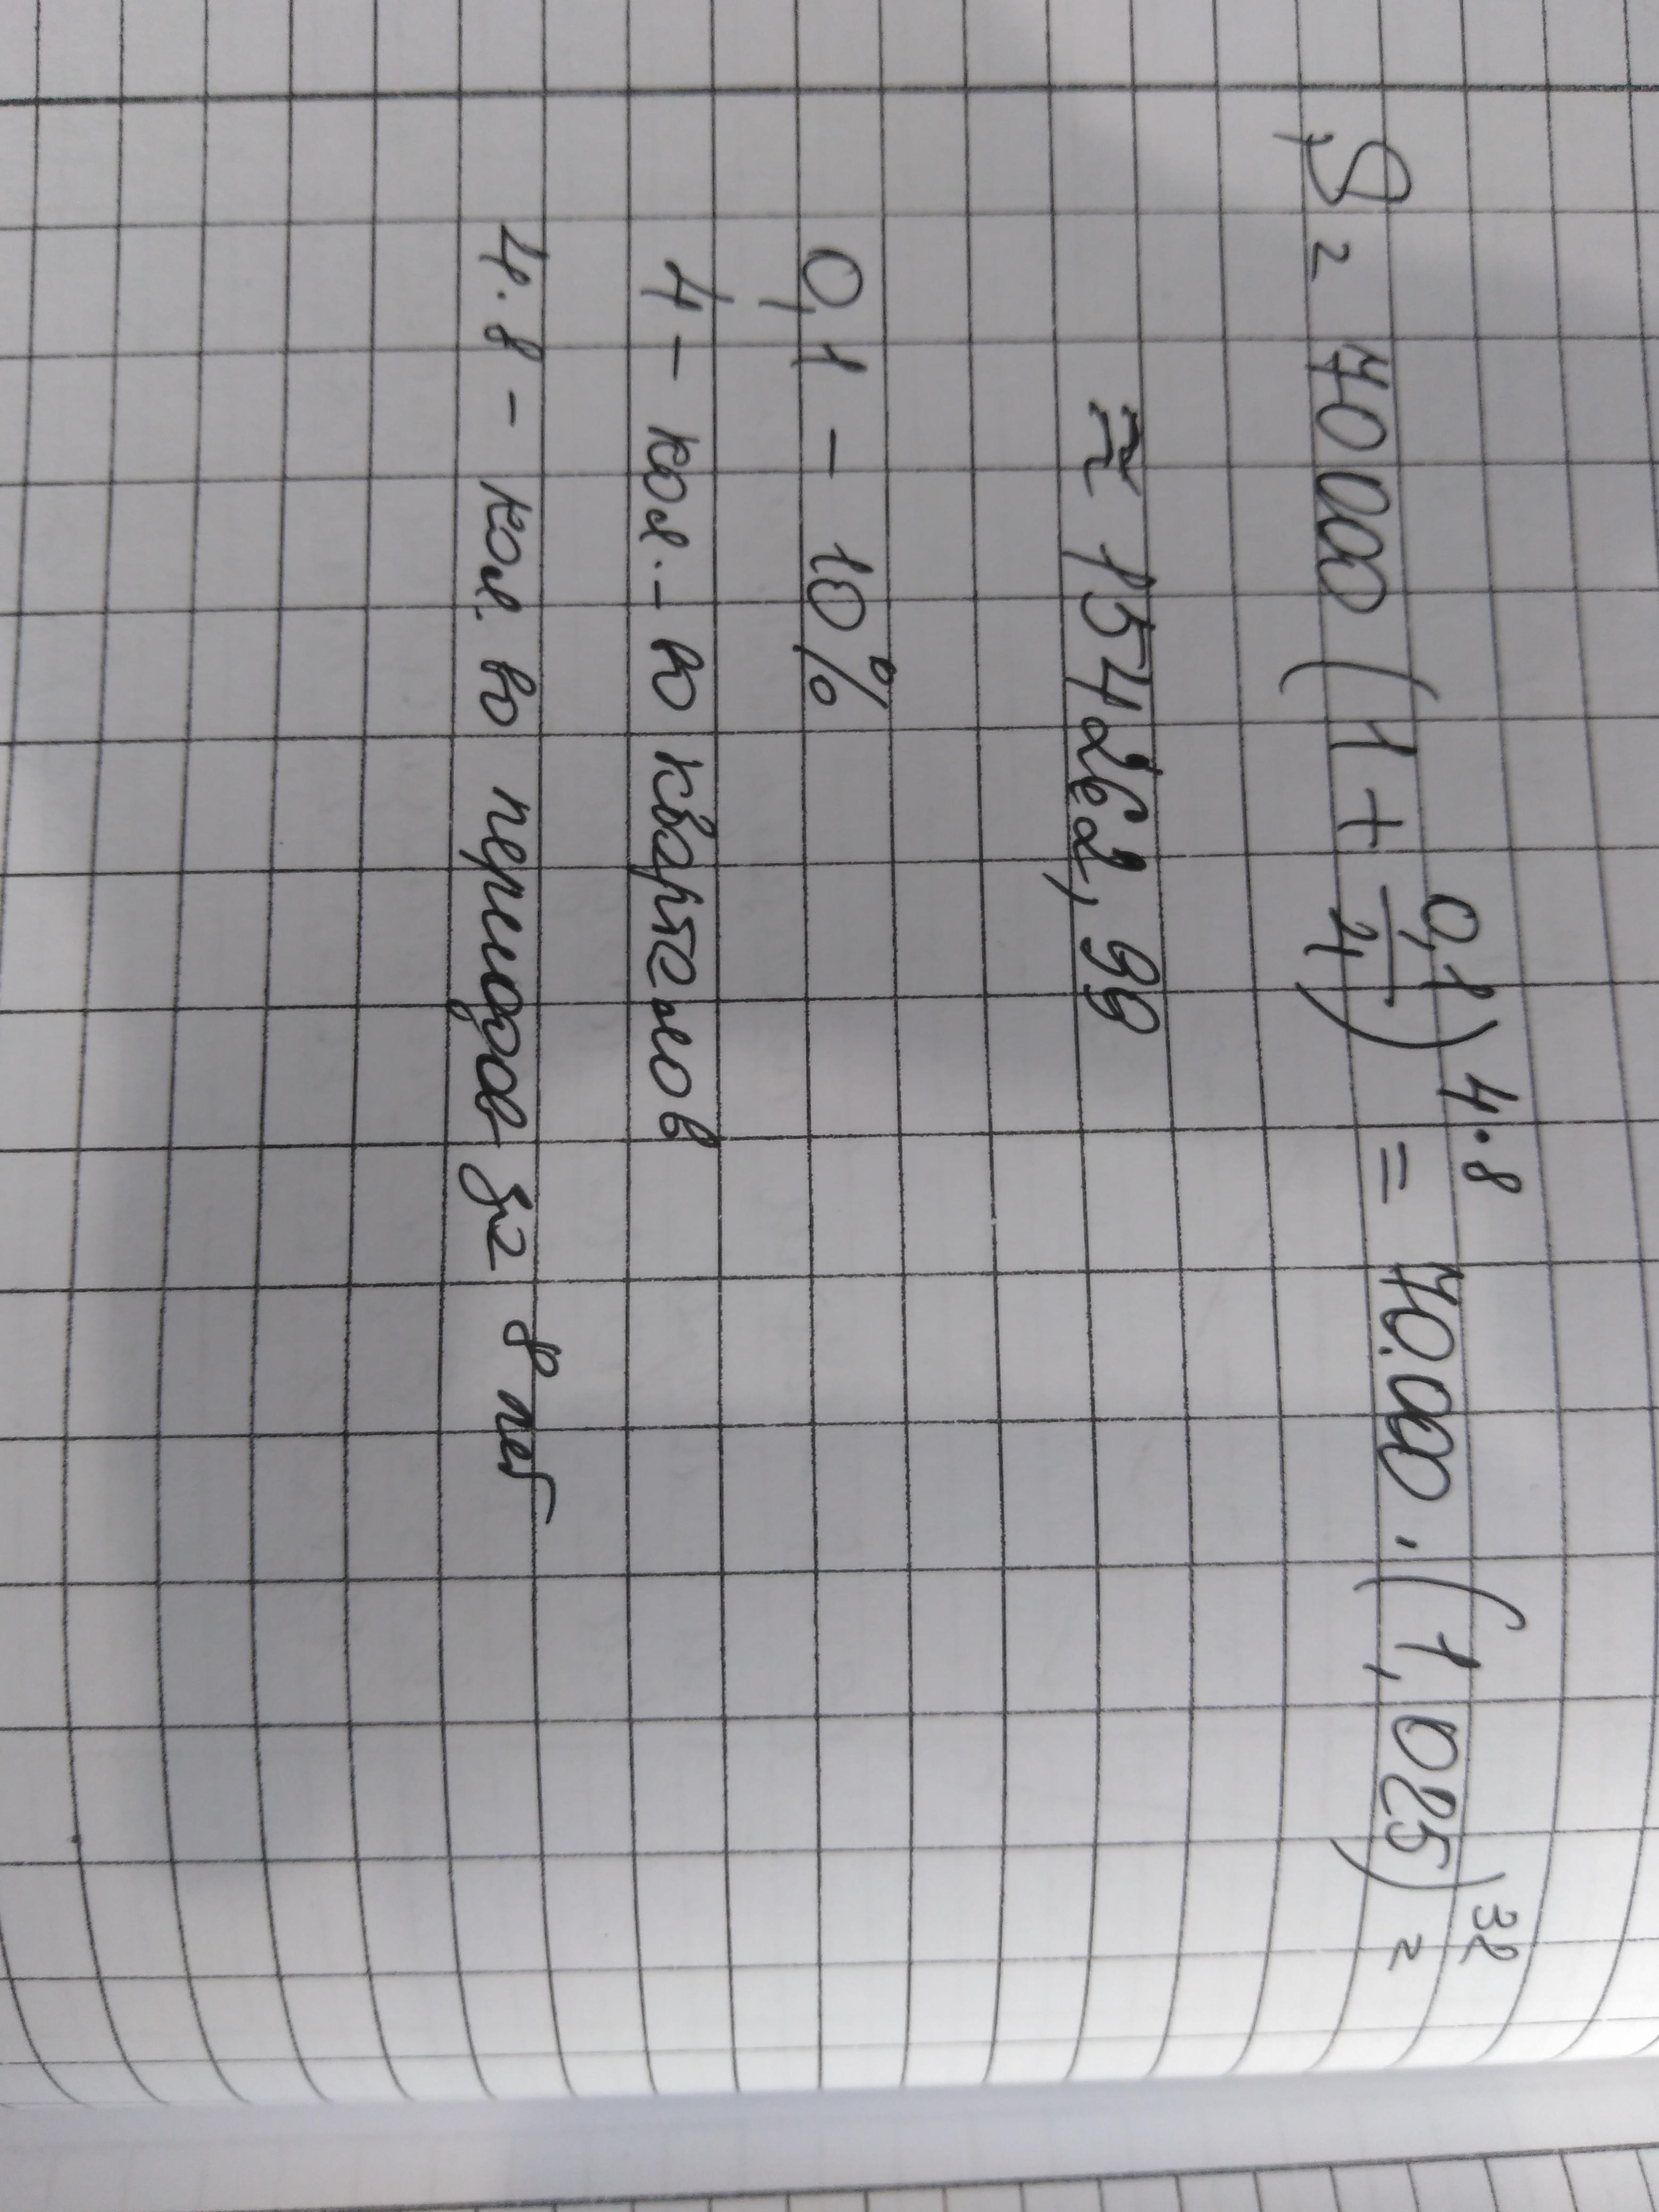 S = 70 000 (1 + 0,1/4)^4·8 = 70.000 · (1,025)^32 =
≈ 154262,99
0,1 – 10%
4 – кол.-во кварталов
4·8 – кол. во периодов за 8 лет